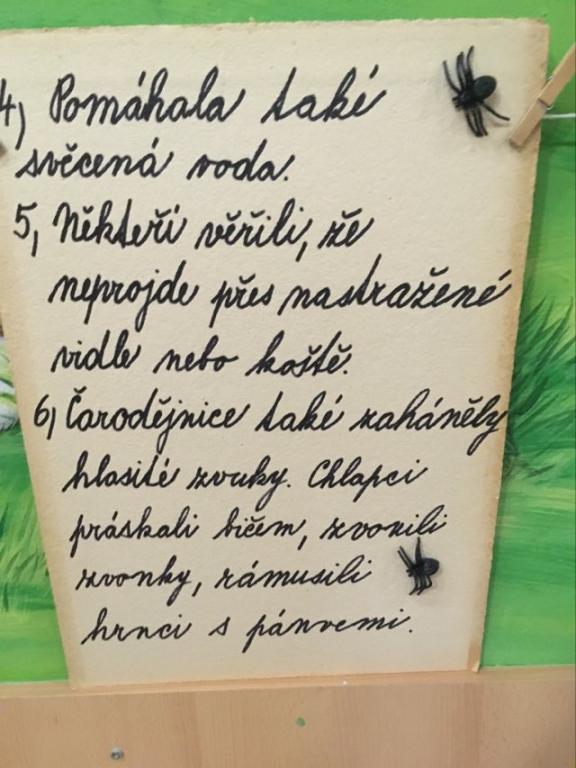 4, Pomáhala také
svěcená voda.
5, Někteří věřili, že
neprojde přes nastražené
vidle nebo koště.
6, Čarodějnice také zaháněly
hlasité zvuky. Chlapci
práskali bičem, zvonili
zvonky, rámusili
hrnci s pánvemi.